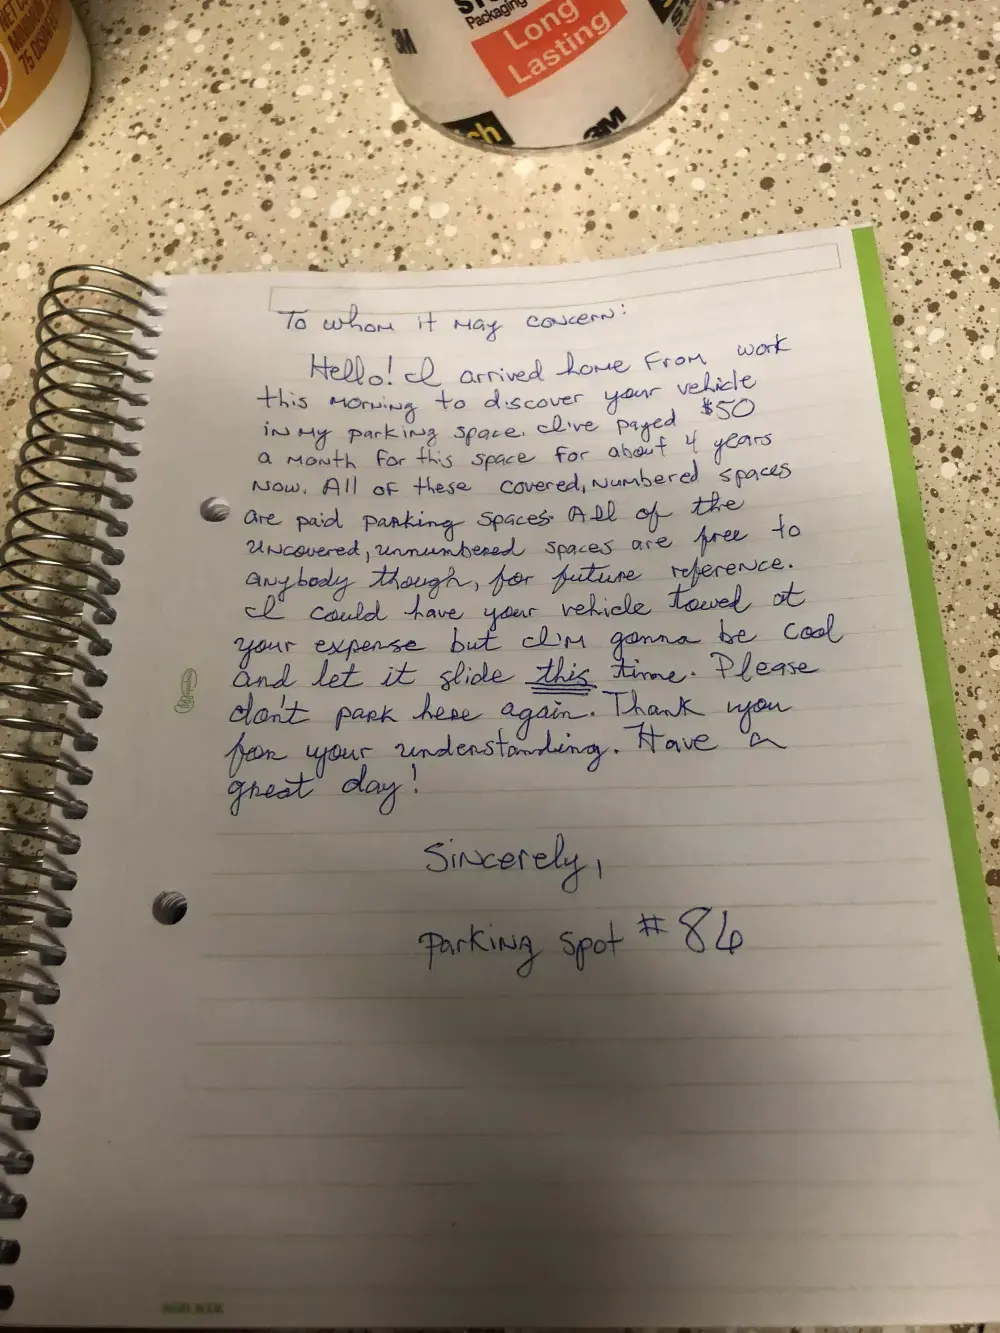 NET C
75 DISIN
3M
Packaging
Long
Lasting
ch
3M
To whom it may concern:
Hello! I arrived home from work
this morning to discover your vehicle
in my parking space. I've payed $50
a month for this space for about 4 years
now. All of these covered, numbered spaces
are paid parking spaces. All of the
uncovered, unnumbered spaces are free to
anybody though, for future reference.
I could have your vehicle towed at
your expense but I'm gonna be cool
and let it slide this time. Please
don't park here again. Thank you
for your understanding. Have a
great day!
Sincerely,
Parking Spot #86